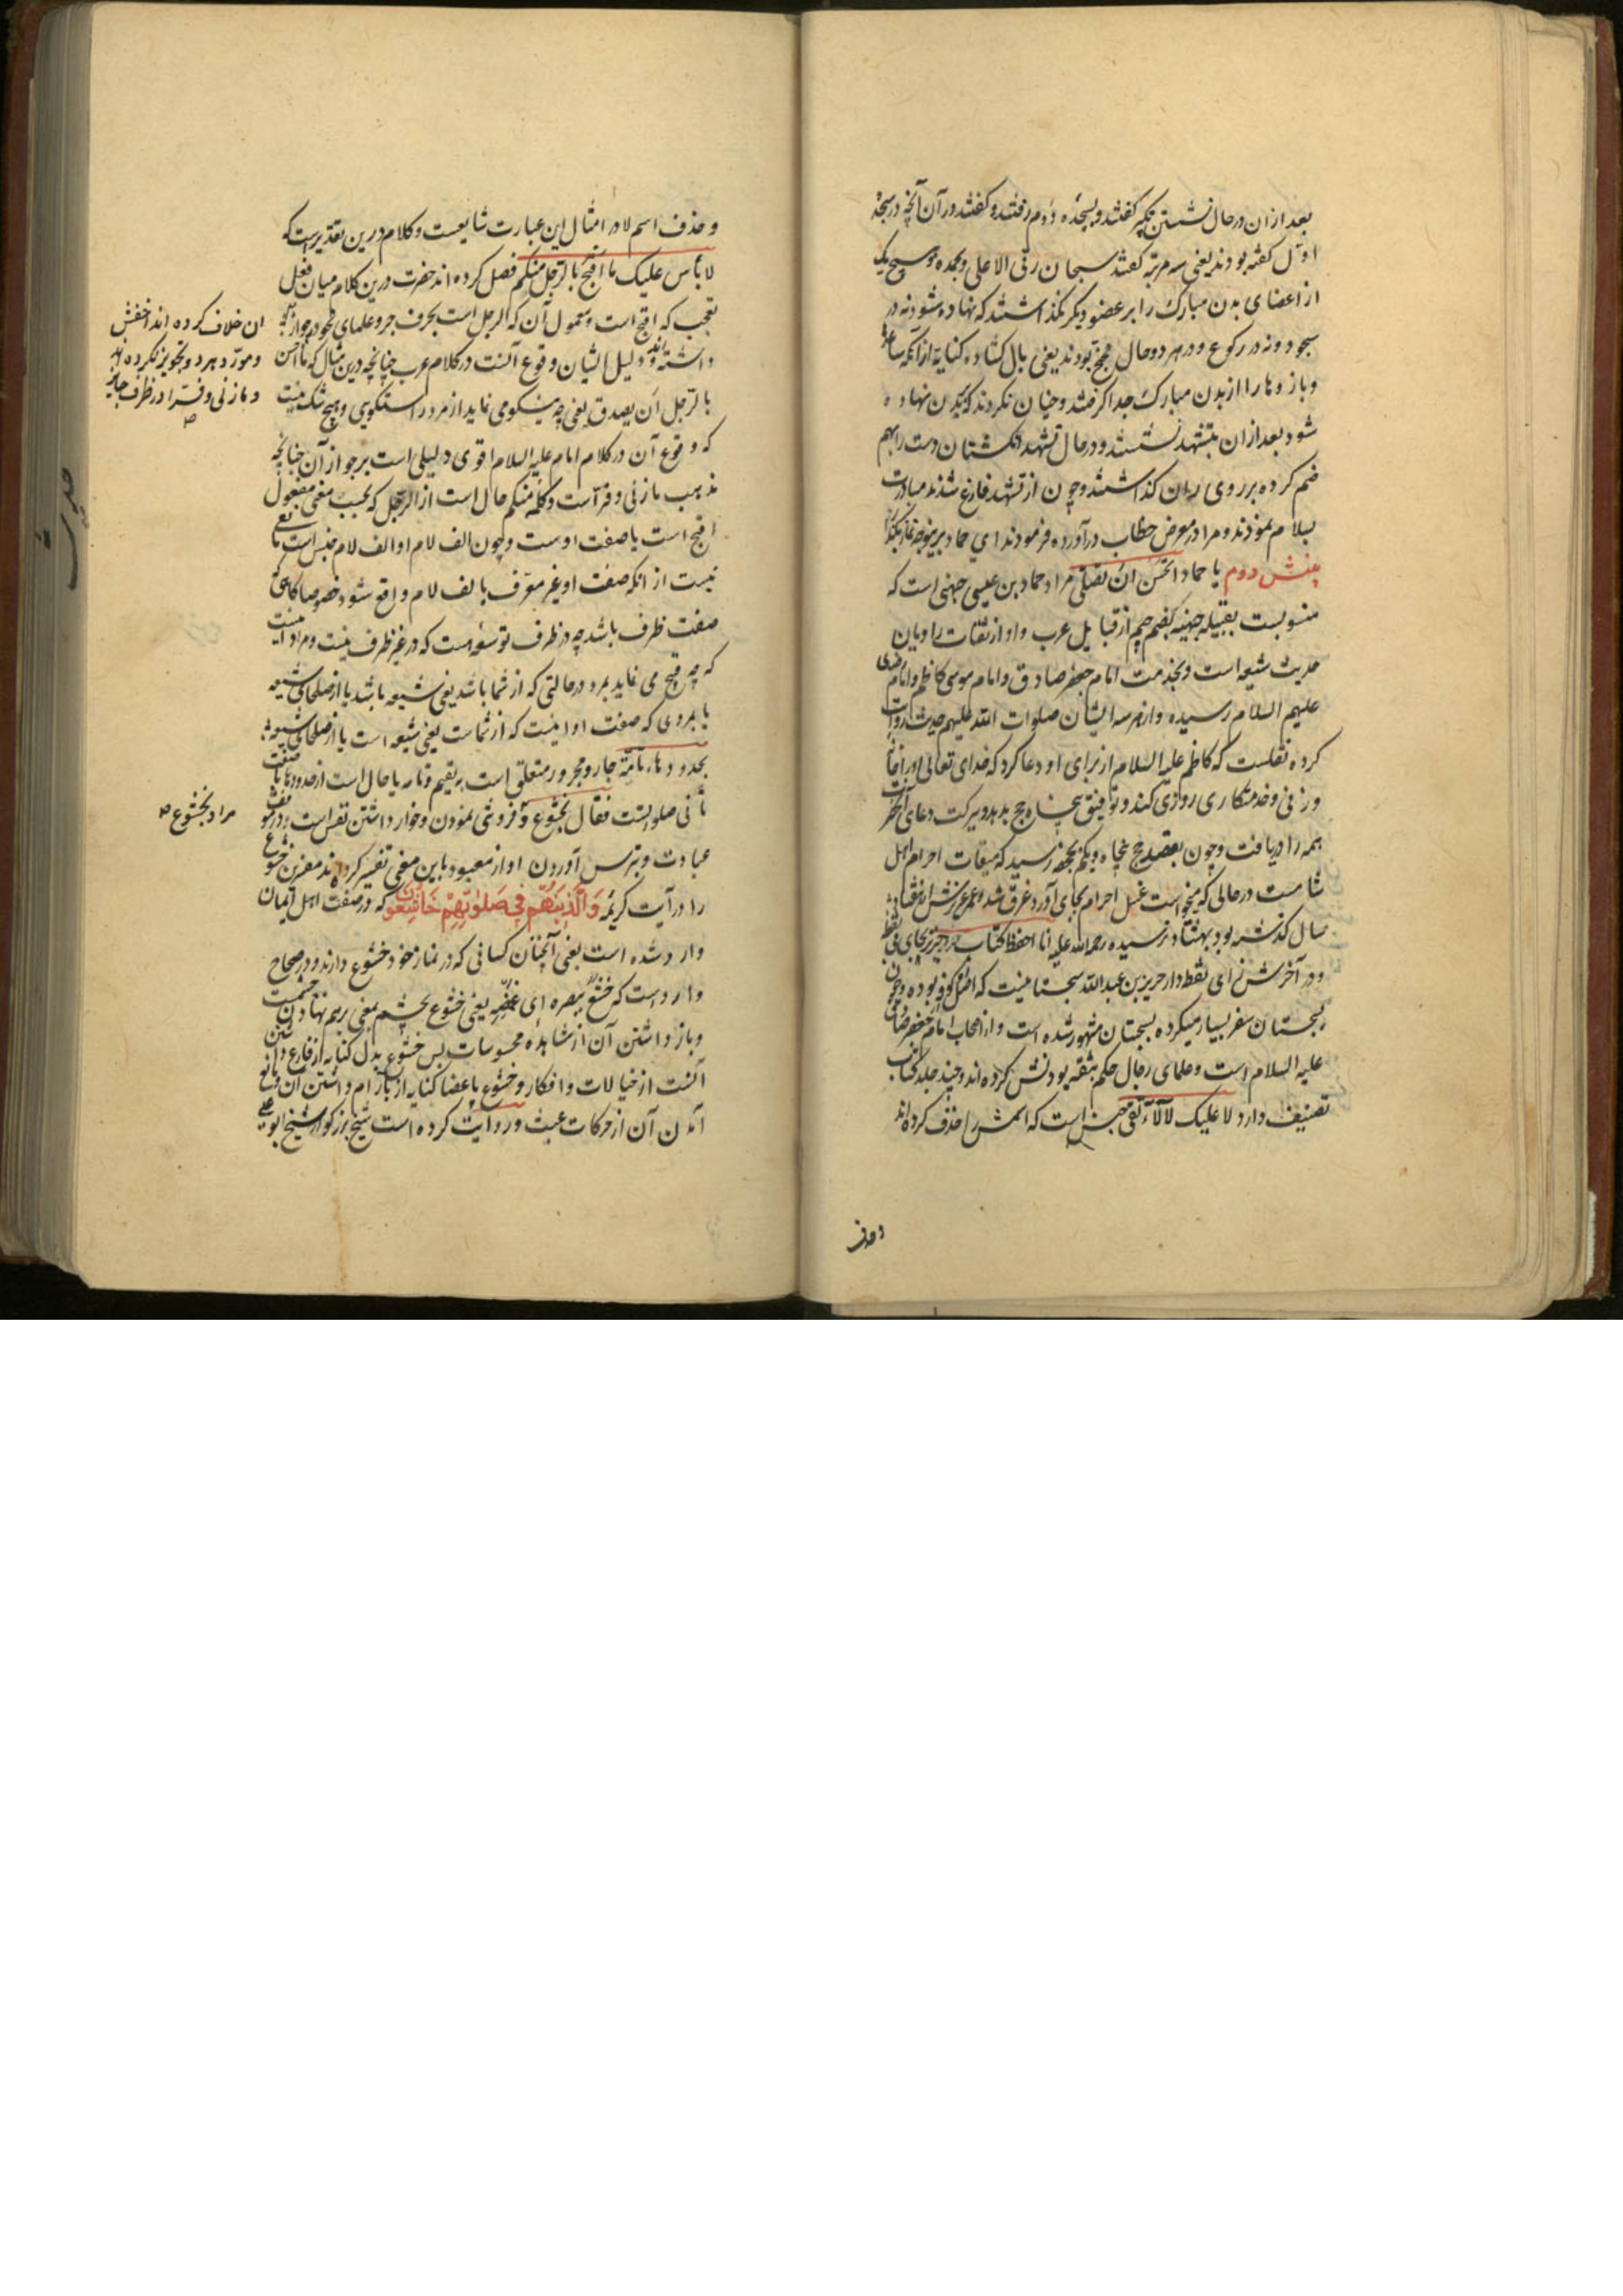 بعد ازان در حال نشستن تکبیر گفتند و بسجده دوم رفتند و گفتند در آن آنچه در سجده
اول گفته بودند یعنی سه مرتبه گفتند سبحان ربی الاعلی و بحمده و هیچ یک
از اعضای بدن مبارک را بر عضو دیگر نگذاشتند که نهاده شود نه در
سجود و نه در رکوع و در هر دو حال مجنح بودند یعنی بال گشاده کنایة از آنکه ساعد
و بازوها را از بدن مبارک جدا گرفتند و چنان نکردند که بر بدن نهاده
شود بعد ازان بتشهد نشستند و در حال تشهد انگشتان دست را بهم
ضم کرده بر روی ران گذاشتند و چون از تشهد فارغ شدند مبادرت
بسلام نمودند و مرا در معرض خطاب درآورده فرمودند ای حماد برینوجه نماز بگذار
بینش دوم یا حماد اتحسن ان تصلی مراد حماد بن عیسی جهنی است که
منسوبست بقبیله جهینه بضم جیم از قبایل عرب و او از ثقات راویان
حدیث شیعه است و بخدمت امام جعفر صادق و امام موسی کاظم و امام رضا
علیهم السلام رسیده و از هر سه ایشان صلوات الله علیهم حدیث روایت
کرده نقلست که کاظم علیه السلام از برای او دعا کرد که خدای تعالی او را خانه
و زنی و خدمتکاری روزی کند و توفیق پنجاه حج بدهد و ببرکت دعای آنحضرت
همه را دریافت و چون بقصد حج پنجاه و یکم بجحفه رسید که میقات احرام اهل
شامست در حالی که میخواست غسل احرام بجای آورد غرق شد و عمر عزیزش از هفتاد
سال گذشته بود بهشتاد نرسیده رحمة الله علیه انا احفظ کتاب حریز بحای بی نقطه
و در آخرش زای نقطه‌دار حریز بن عبد الله سجستانیست که اصلش کوفی بوده و چون
بسجستان سفر بسیار میکرده بسجستان مشهور شده است و از اصحاب امام جعفر صادق
علیه السلام است و علمای رجال حکم بثقه بودنش کرده‌اند و چند جلد کتاب
تصنیف دارد لا علیک لا لاء نفی جنس است که اسمش را حذف کرده‌اند
وحذف
و حذف اسم لا در امثال این عبارت شایعست و کلام درین تقدیرست که
لا بأس علیک ما اقبح بالرجل منکم فصل کرده‌اند حضرت درین کلام میان فعل
تعجب که اقبح است و معمول آن که الرجل است بحرف جر و علمای نحو در جواز
داشته‌اند و دلیل ایشان وقوع آنست در کلام عرب چنانچه درین مثال که ما احسن
بالرجل أن یصدق یعنی چه نیکو می نماید از مرد راستگویی و هیچ شک نیست
که وقوع آن در کلام امام علیه السلام اقوی دلیلی است بر جواز آن چنانچه
مذهب مازنی و فرّاست و کلمه منکم حال است از الرجل که بحسب معنی مفعول
اقبح است یا صفت اوست و چون الف لام او الف لام جنس است مانعی
نیست از انکه صفت او غیر معرف بالف لام واقع شود خصوصا کاهی که
صفت ظرف باشد چه در ظرف توسعه است که در غیر ظرف نیست و مراد اینست
که چه قبیح می نماید بمرد در حالتی که از شما باشد یعنی شیعه باشد یا از صلحای شیعه
یا بمردی که صفت او اینست که از شماست یعنی شیعه است یا از صلحای شیعه
بحدودها تامة جار و مجرور متعلق است بیقیم و تامه یا حال است از حدودها یا صفت
ثانی صلواتست فقال بخشوع و فروتنی نمودن و خوار داشتن نفس است در
عبادت و بترس آوردن او از معبود باین معنی تفسیر کرده‌اند مفسرین خشوع
را در آیت کریمه وَالَّذِینَ هُمْ فِی صَلوٰتِهِمْ خَاشِعُونَ که در صفت اهل ایمان
وارد شده است یعنی آنچنان کسانی که در نماز خود خشوع دارند و در صحاح
وارد است که خشع ببصره ای غضه یعنی خشوع بچشم بمعنی برهم نهادن چشمست
و باز داشتن آن از مشاهده محسوسات پس خشوع بدل کنایه از فارغ داشتن
آنست از خیالات و افکار و خشوع باعضا کنایه از بآرام داشتن آن و مانع
آمدن آن از حرکات عبث و روایت کرده است شیخ بزرگوار شیخ ابو علی
ان خلاف کرده اند اخفش
و مورد و مبرد و تجویز نکرده اند
و مازنی و فرا در ظرف جایز
مراد بخشوع
حدیث